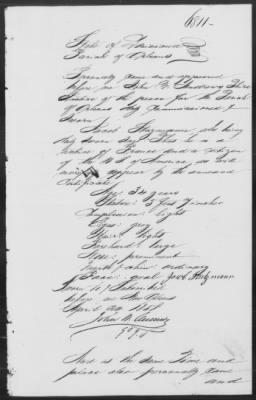 6811
State of Louisiana
Parish of Orleans
Personally came and appeared
before me John
Justice of the peace for the Parish
of Orleans duly Commissioned &
Sworn
Jacob who being
duly sworn says That he is a
native of France and a citizen
of the U.S. of America, as will
appear by the annexed
Certificate
Age: 34 years
Stature: 5 feet 7 inches
Complexion: light
Eyes: grey
Hair: light
Forehead: large
Nose: prominent
Mouth & chin: ordinary
Face: oval Jacob
Sworn to & Subscribed
before me New Orleans
April 29 185
John
J. P.
And at the same Time and
place also personally came
and